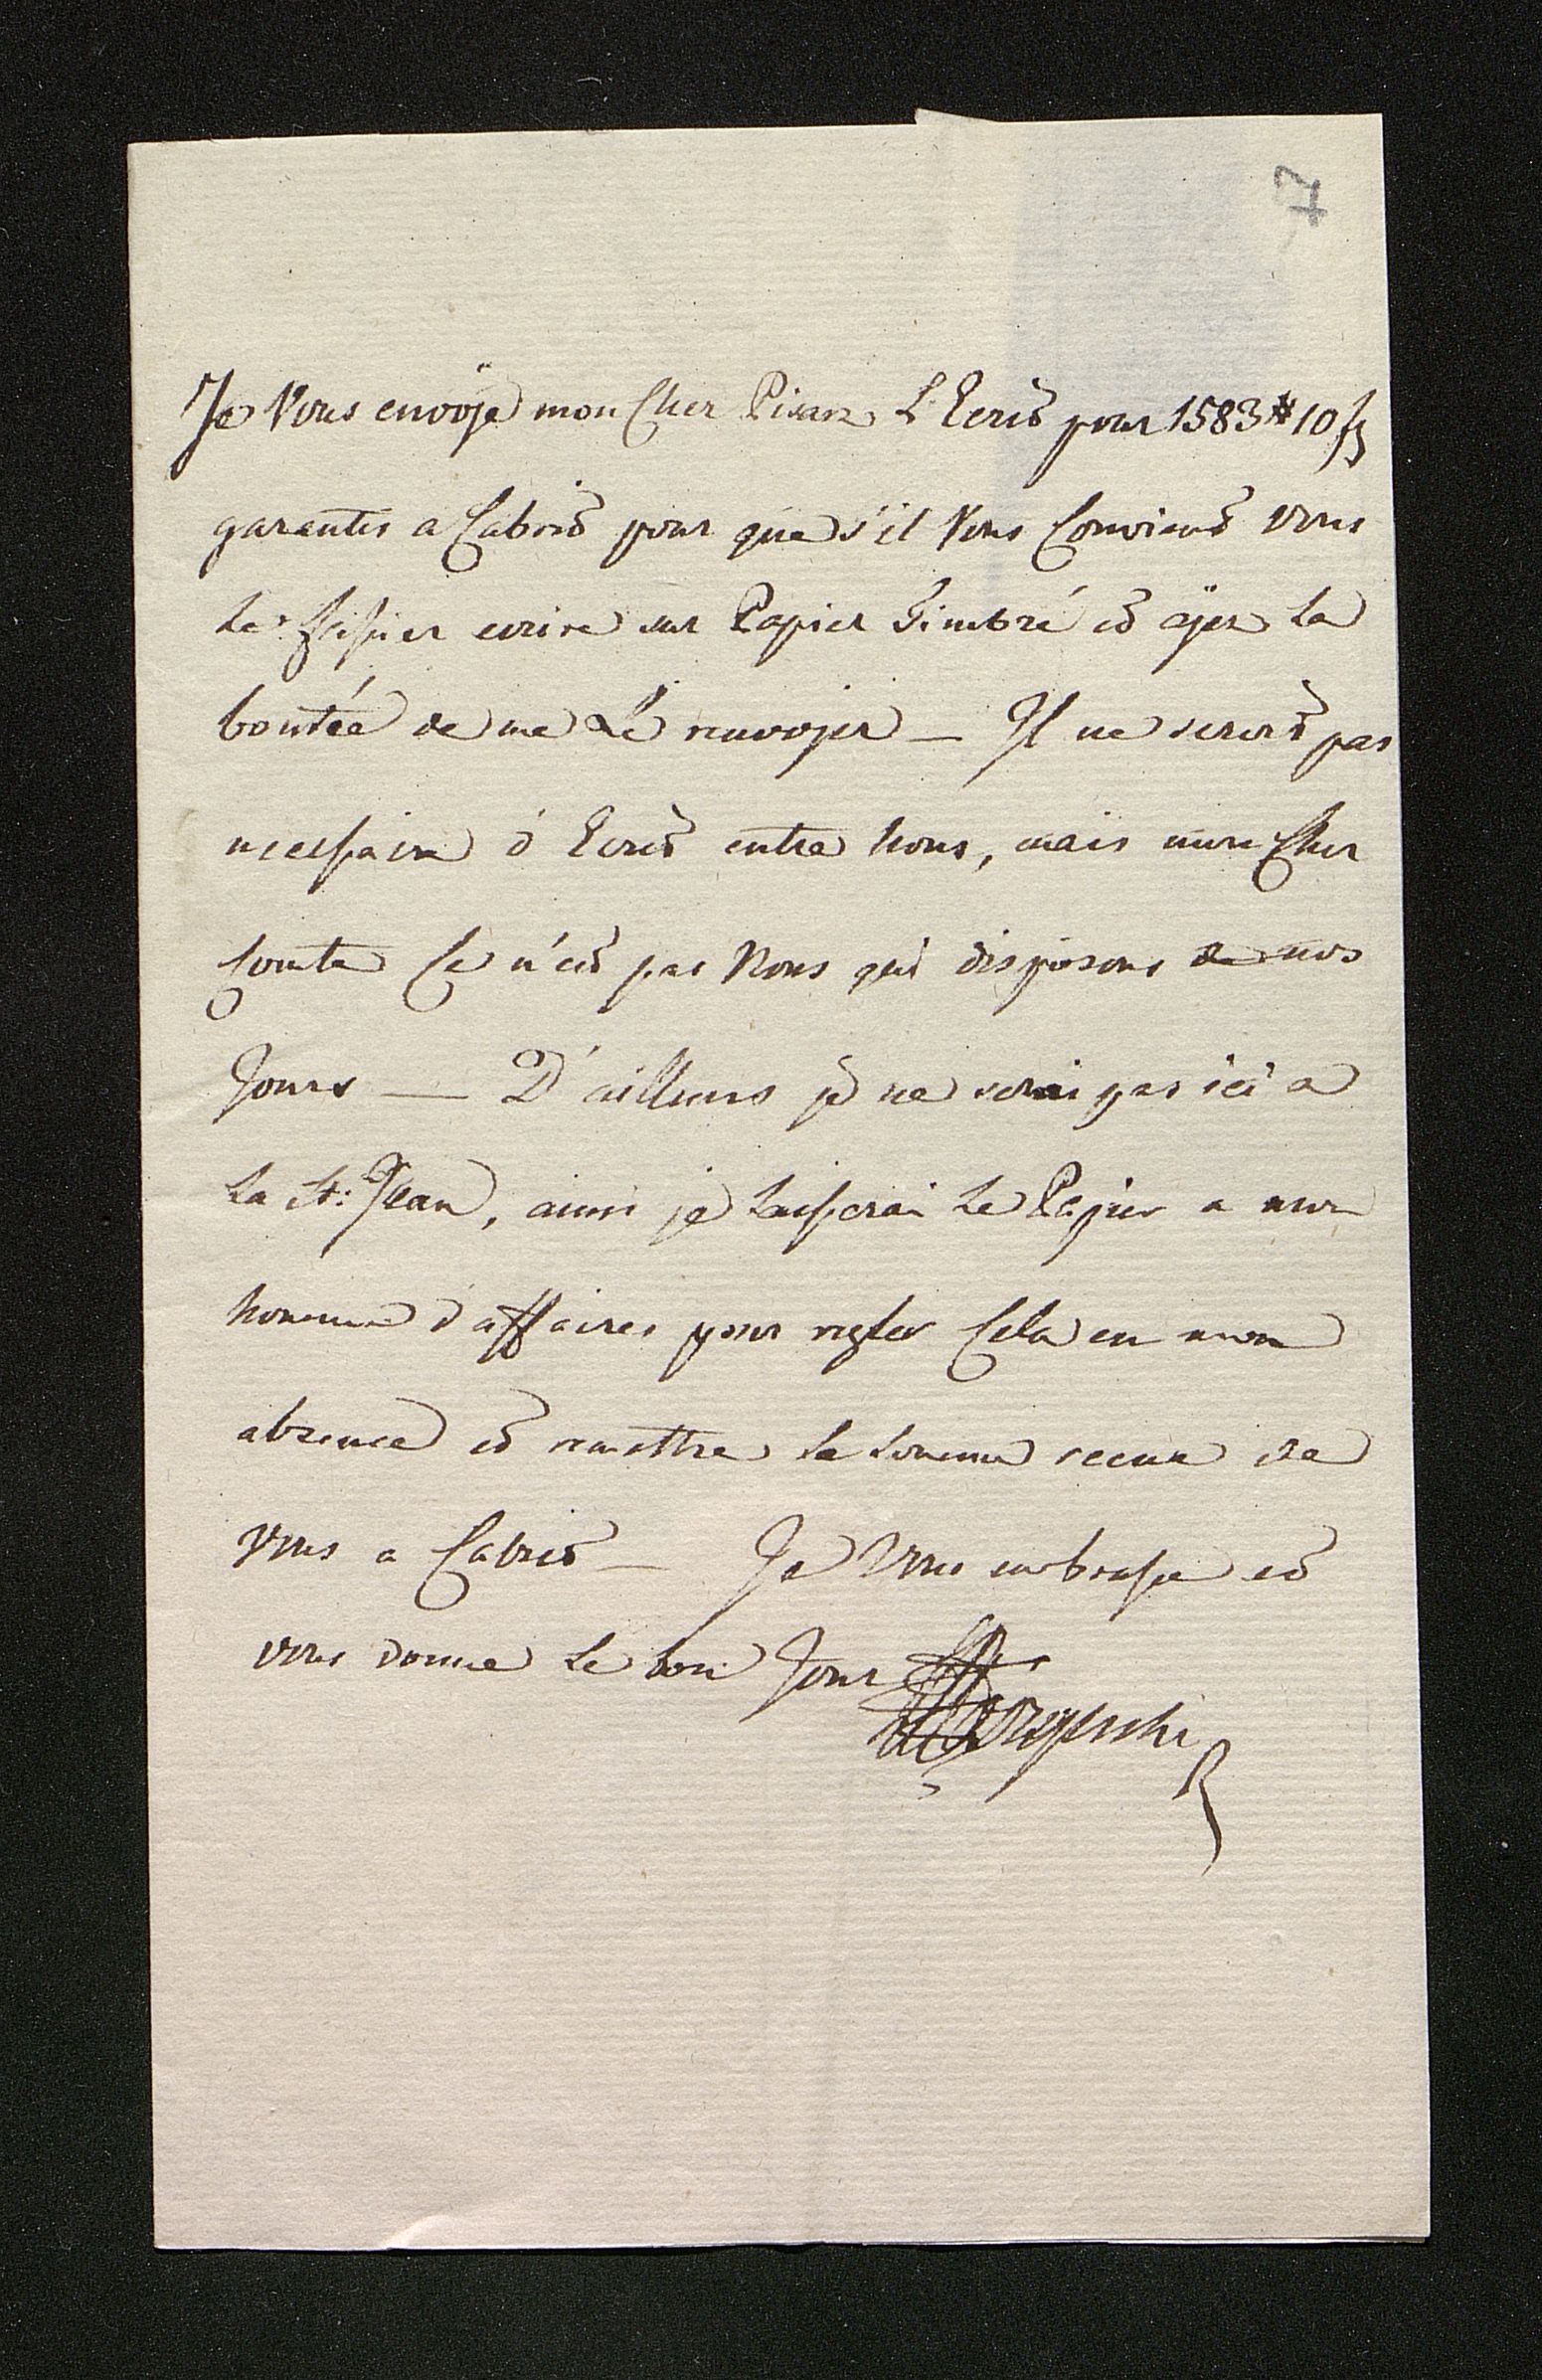 7
Je Vous envoÿe mon Cher Pisan L'Ecrit pour 1583# 10 ß
garantis a Cabrit pour que s'il Vous Convient vous
Le fassiez ecrire sur Papier Timbré et aÿez la
bontée de me Le renvoÿer — Il ne serait pas
necessaire d'Ecrit entre Nous, mais mon Cher
Comte Ce n'est pas Nous qui disposons de nos
Jours — D'ailleurs je ne serai pas ici a
La St: Jean, ainsi je laisserai Le Papier a mon
homme d'affaires pour regler Cela en mon
absence et remettre la somme recue de
Vous a Cabrit — Je Vous embrasse et
vous donne le bon Jour